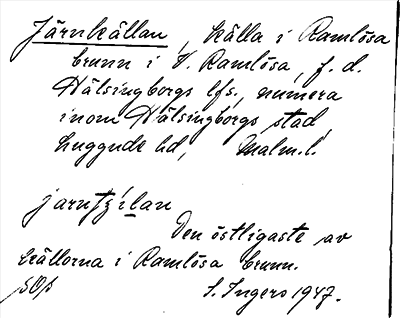 Järnkällan, källa i Ramlösa
brunn i V. Ramlösa, f. d.
Hälsingborgs lfs, numera
inom Hälsingborgs stad,
Luggude hd, Malm.l.
Den östligaste av
källorna i Ramlösa brunn.
S. Ingers 1947.